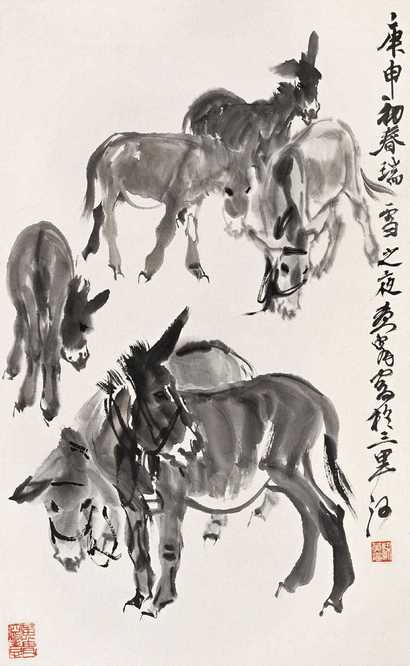 庚申初春瑞雪之夜黄胄写於三里河